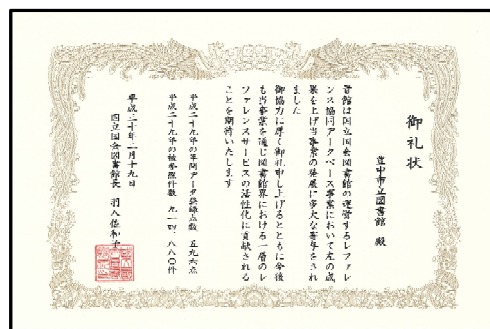 御礼状
豊中市立図書館 殿
貴館は国立国会図書館の運営するレファレ
ンス協同データベース事業において左の成
果を上げ当事業の発展に多大な寄与をされ
ました
御協力に厚く御礼申し上げるとともに今後
も当事業を通じ図書館界における一層のレ
ファレンスサービスの活性化に貢献される
ことを期待いたします
平成二十九年の年間データ登録点数 五九六点
平成二十九年の被参照件数 九一四、八八〇件
平成三十年二月十九日
国立国会図書館長 羽入佐和子